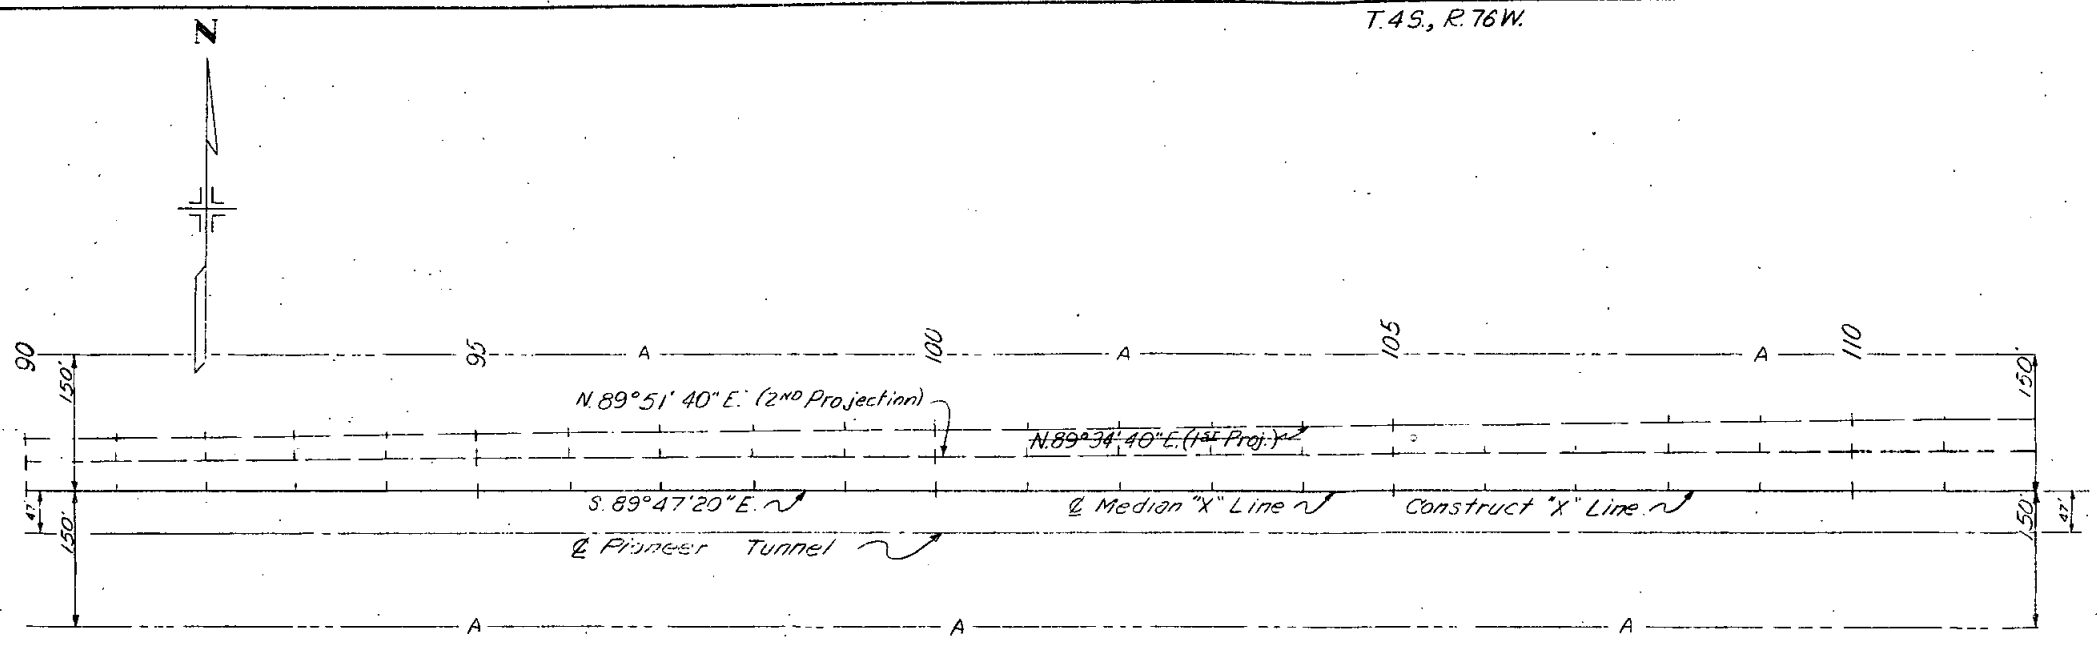 T. 4 S., R. 76 W.
N
90
95
A
100
A
105
A
110
150'
150'
N. 89° 51' 40" E. (2ND Projection)
N. 89° 34' 40" E. (1ST Proj.)
S. 89° 47' 20" E.
℄ Median "X" Line
Construct "X" Line
47'
150'
150'
47'
℄ Pioneer Tunnel
A
A
A